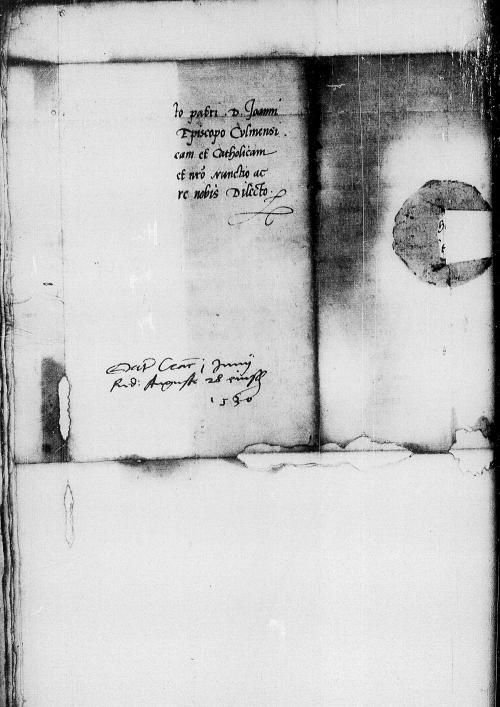 to patri D. Joanni
Episcopo Culmensi.
eam et Catholicam
et nr̄o Nunctio ac
re nobis Dilecto.
Dat Crac j Junij
Rd: Auguste 28 eiusd
1530